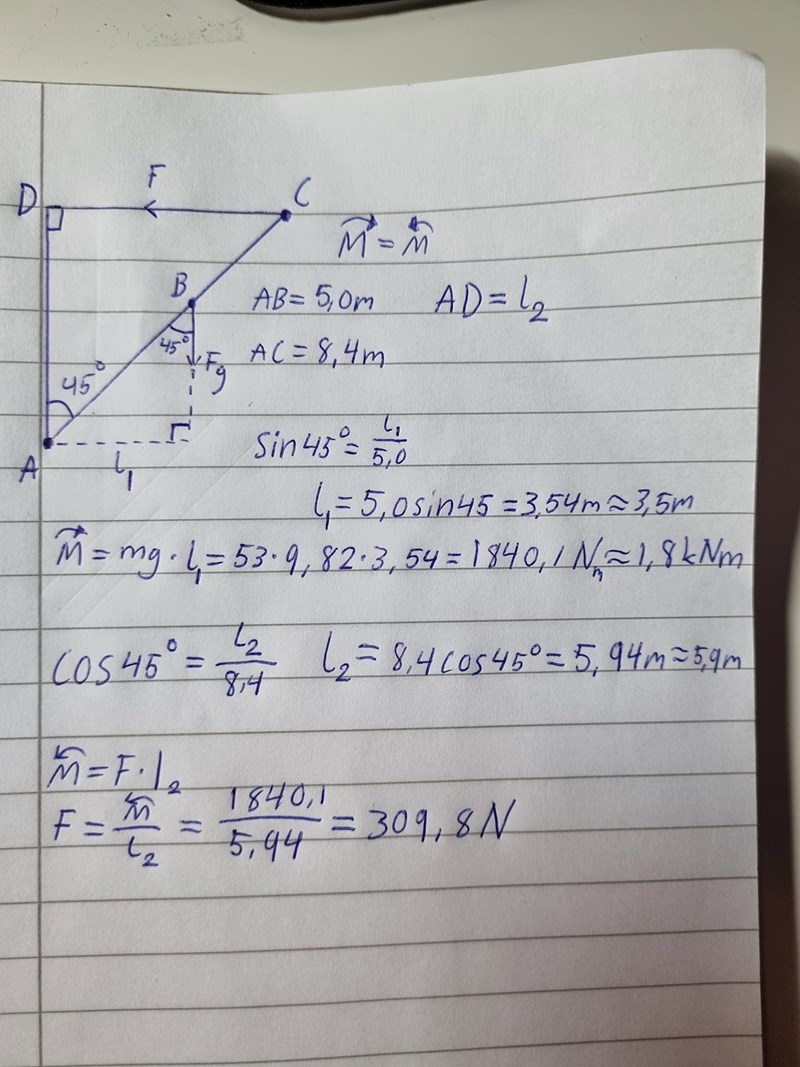 F
D
C
M = M
B
AB = 5,0m
AD = l₂
45°
Fg
AC = 8,4m
45°
A
l₁
sin45° = l₁/5,0
l₁ = 5,0sin45 = 3,54m ≈ 3,5m
M = mg · l₁ = 53 · 9,82 · 3,54 = 1840,1 Nm ≈ 1,8kNm
cos45° = l₂/8,4
l₂ = 8,4cos45° = 5,94m ≈ 5,9m
M = F · l₂
F = M/l₂ = 1840,1/5,94 = 309,8N